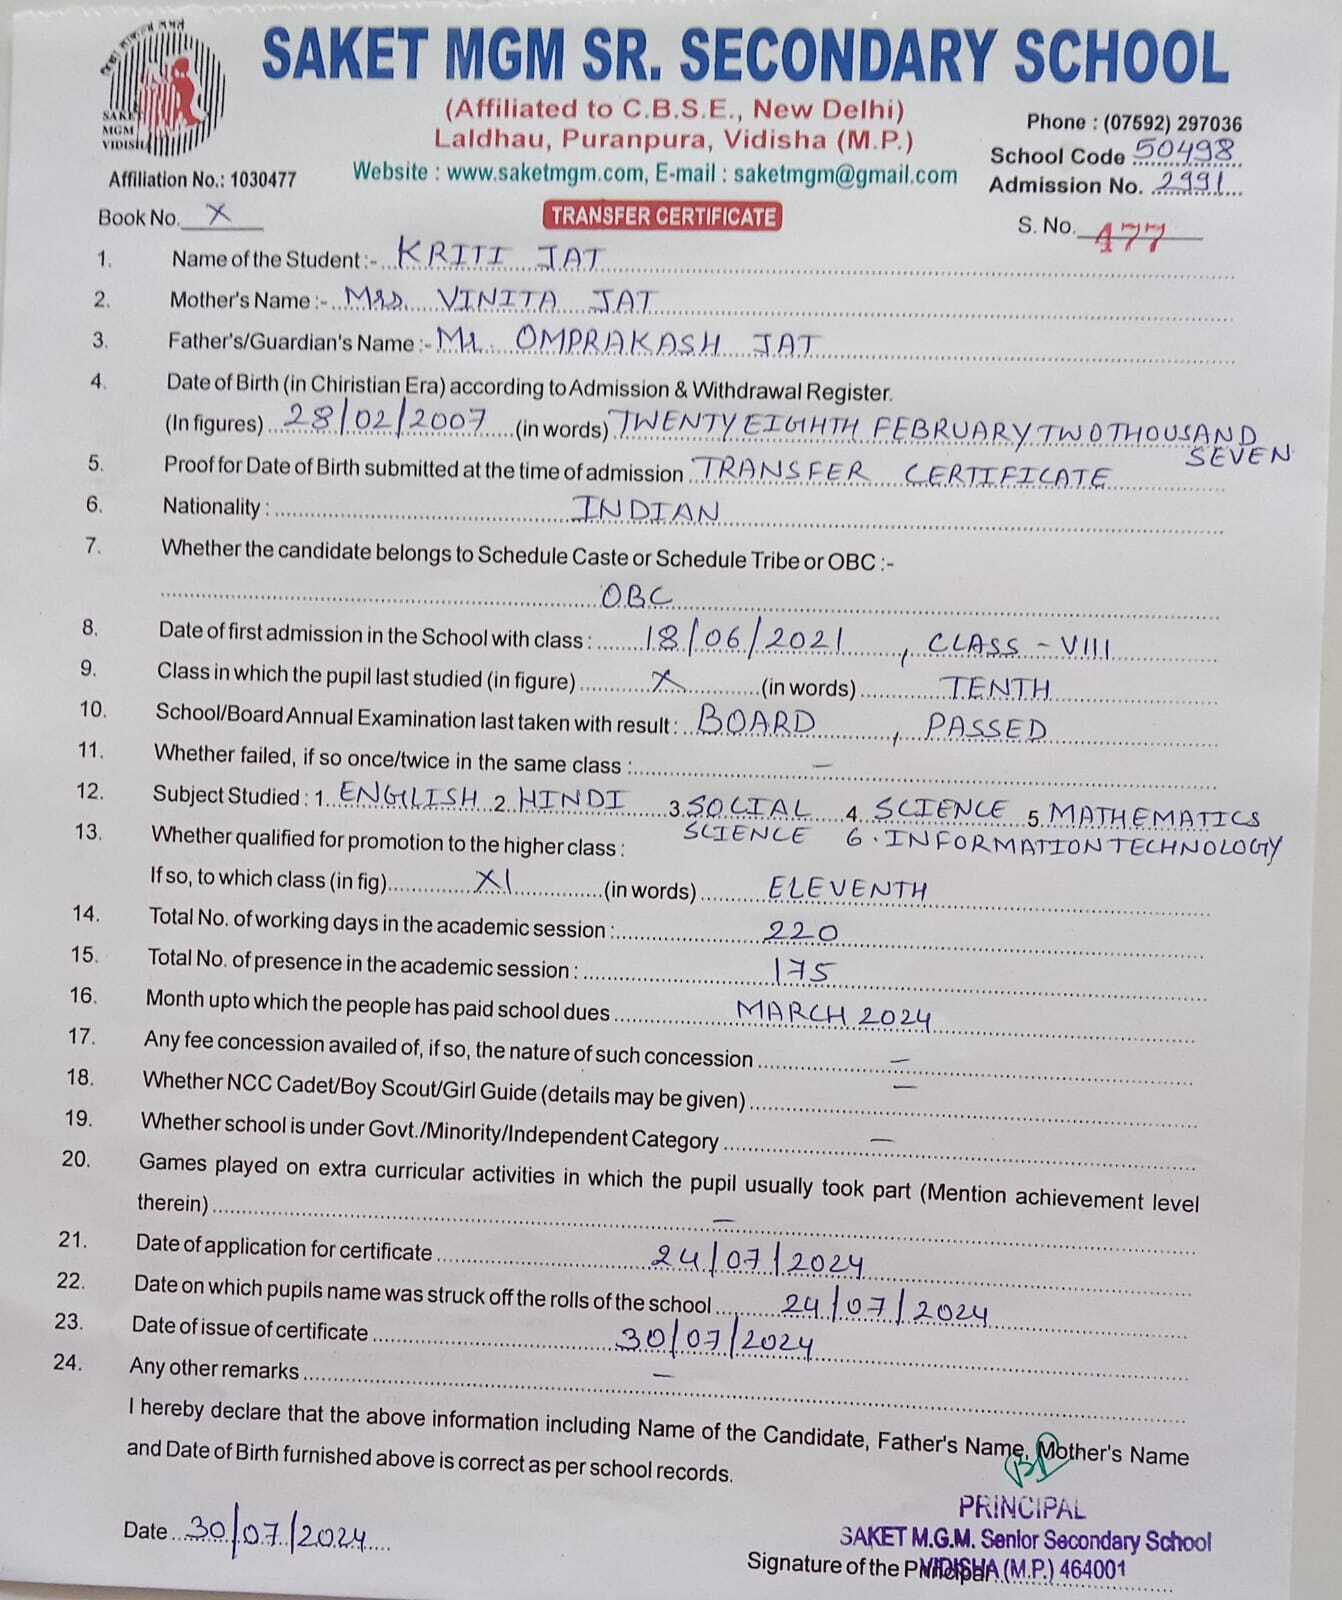 SAKET MGM SR. SECONDARY SCHOOL
(Affiliated to C.B.S.E., New Delhi)
Laldhau, Puranpura, Vidisha (M.P.)
Website : www.saketmgm.com, E-mail : saketmgm@gmail.com
SAKET
MGM
VIDISHA
Phone : (07592) 297036
School Code 50498
Affiliation No.: 1030477
Admission No. 2991
Book No. X
TRANSFER CERTIFICATE
S. No. 477
1. Name of the Student :- KRITI JAT
2. Mother's Name :- Mrs. VINITA JAT
3. Father's/Guardian's Name :- Mr. OMPRAKASH JAT
4. Date of Birth (in Chiristian Era) according to Admission & Withdrawal Register.
(In figures) 28/02/2007 (in words) TWENTY EIGHTH FEBRUARY TWO THOUSAND
SEVEN
5. Proof for Date of Birth submitted at the time of admission TRANSFER CERTIFICATE
6. Nationality : INDIAN
7. Whether the candidate belongs to Schedule Caste or Schedule Tribe or OBC :-
OBC
8. Date of first admission in the School with class : 18/06/2021, CLASS - VIII
9. Class in which the pupil last studied (in figure) X (in words) TENTH
10. School/Board Annual Examination last taken with result : BOARD, PASSED
11. Whether failed, if so once/twice in the same class : –
12. Subject Studied : 1. ENGLISH 2. HINDI 3. SOCIAL 4. SCIENCE 5. MATHEMATICS
SCIENCE 6. INFORMATION TECHNOLOGY
13. Whether qualified for promotion to the higher class :
If so, to which class (in fig) XI (in words) ELEVENTH
14. Total No. of working days in the academic session : 220
15. Total No. of presence in the academic session : 175
16. Month upto which the people has paid school dues MARCH 2024
17. Any fee concession availed of, if so, the nature of such concession –
18. Whether NCC Cadet/Boy Scout/Girl Guide (details may be given) –
19. Whether school is under Govt./Minority/Independent Category –
20. Games played on extra curricular activities in which the pupil usually took part (Mention achievement level
therein) –
21. Date of application for certificate 24/07/2024
22. Date on which pupils name was struck off the rolls of the school 24/07/2024
23. Date of issue of certificate 30/07/2024
24. Any other remarks –
I hereby declare that the above information including Name of the Candidate, Father's Name, Mother's Name
and Date of Birth furnished above is correct as per school records.
PRINCIPAL
Date 30/07/2024
SAKET M.G.M. Senior Secondary School
VIDISHA (M.P.) 464001
Signature of the Principal